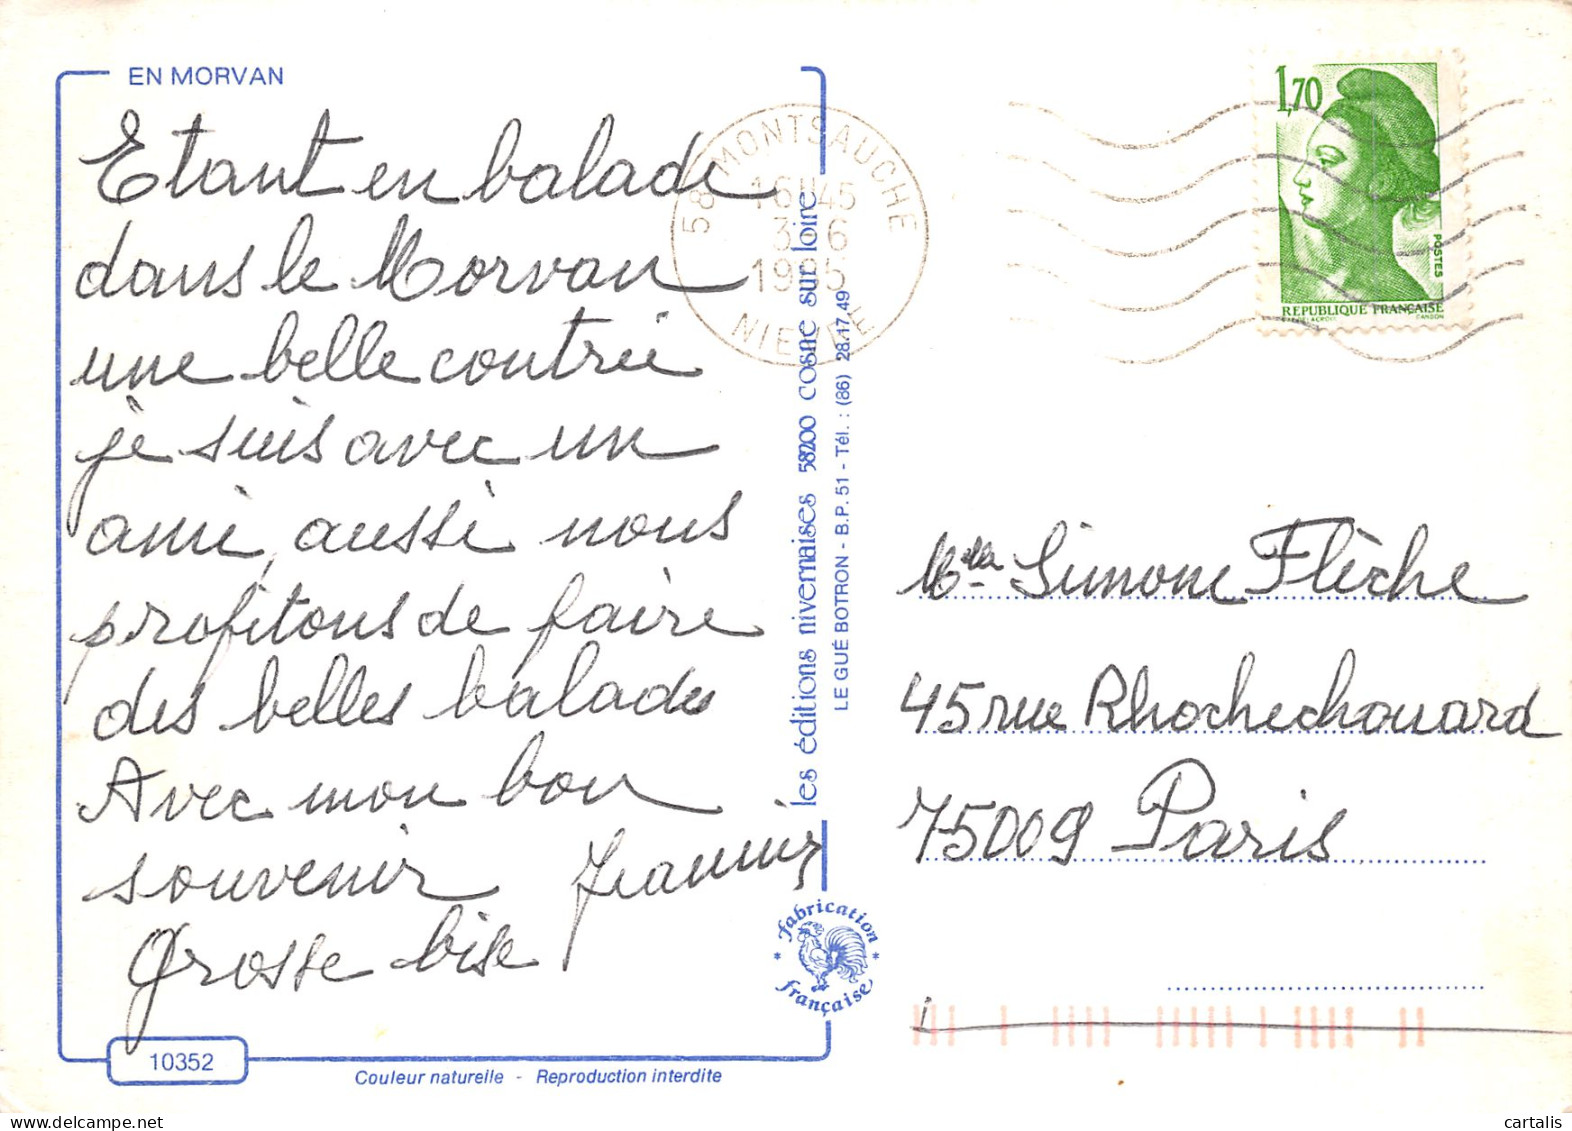 EN MORVAN
Etant en balade
dans le Morvan
une belle contrée
je suis avec un
ami, aussi nous
profitons de faire
des belles balades
Avec mon bon
souvenir
Grosse bise
58 MONTSAUCHE
16H45
3-6
1985
NIEVRE
1,70
POSTES
REPUBLIQUE FRANÇAISE
GANDON
les éditions nivernaises 58200 cosne sur loire
LE GUÉ BOTRON - B.P. 51 - Tél. : (86) 28.17.49
Melle Simone Flèche
45 rue Rhochechouard
75009 Paris
* fabrication *
française
1
10352
Couleur naturelle - Reproduction interdite
cartalis